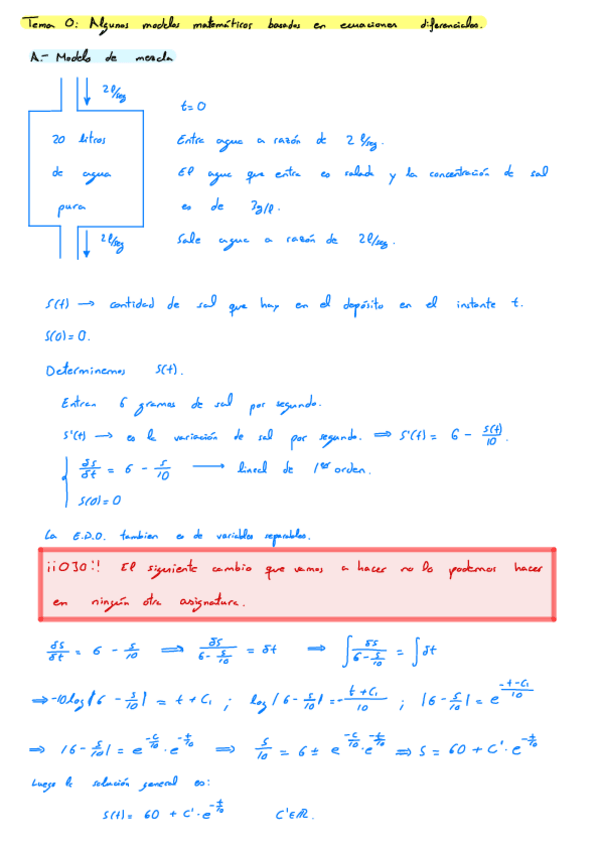 Tema 0: Algunos modelos matemáticos basados en ecuaciones diferenciales.
A.- Modelo de mezcla
2 l/seg
t=0
20 litros
Entra agua a razón de 2 l/seg.
de agua
El agua que entra es salada y la concentración de sal
pura
es de 3g/l.
2l/seg
Sale agua a razón de 2l/seg.
S(t) → cantidad de sal que hay en el depósito en el instante t.
S(0)=0.
Determinemos S(t).
Entran 6 gramos de sal por segundo.
S'(t) → es la variación de sal por segundo. ⇒ S'(t) = 6 - S(t)/10.
δS/δt = 6 - S/10 → lineal de 1er orden.
S(0)=0
La E.D.O. tambien es de variables separables.
¡¡OJO!! El siguiente cambio que vamos a hacer no lo podemos hacer
en ningún otra asignatura.
δS/δt = 6 - S/10 ⇒ δS/(6 - S/10) = δt ⇒ ∫ δS/(6 - S/10) = ∫ δt
⇒ -10log|6 - S/10| = t + C₁ ; log|6 - S/10| = - (t + C₁)/10 ; |6 - S/10| = e^((-t-C₁)/10)
⇒ |6 - S/10| = e^(-C/10) · e^(-t/10) ⇒ S/10 = 6 ± e^(-C/10) · e^(-t/10) ⇒ S = 60 + C' · e^(-t/10)
Luego la solución general es:
S(t) = 60 + C' · e^(-t/10) C'∈ℝ.